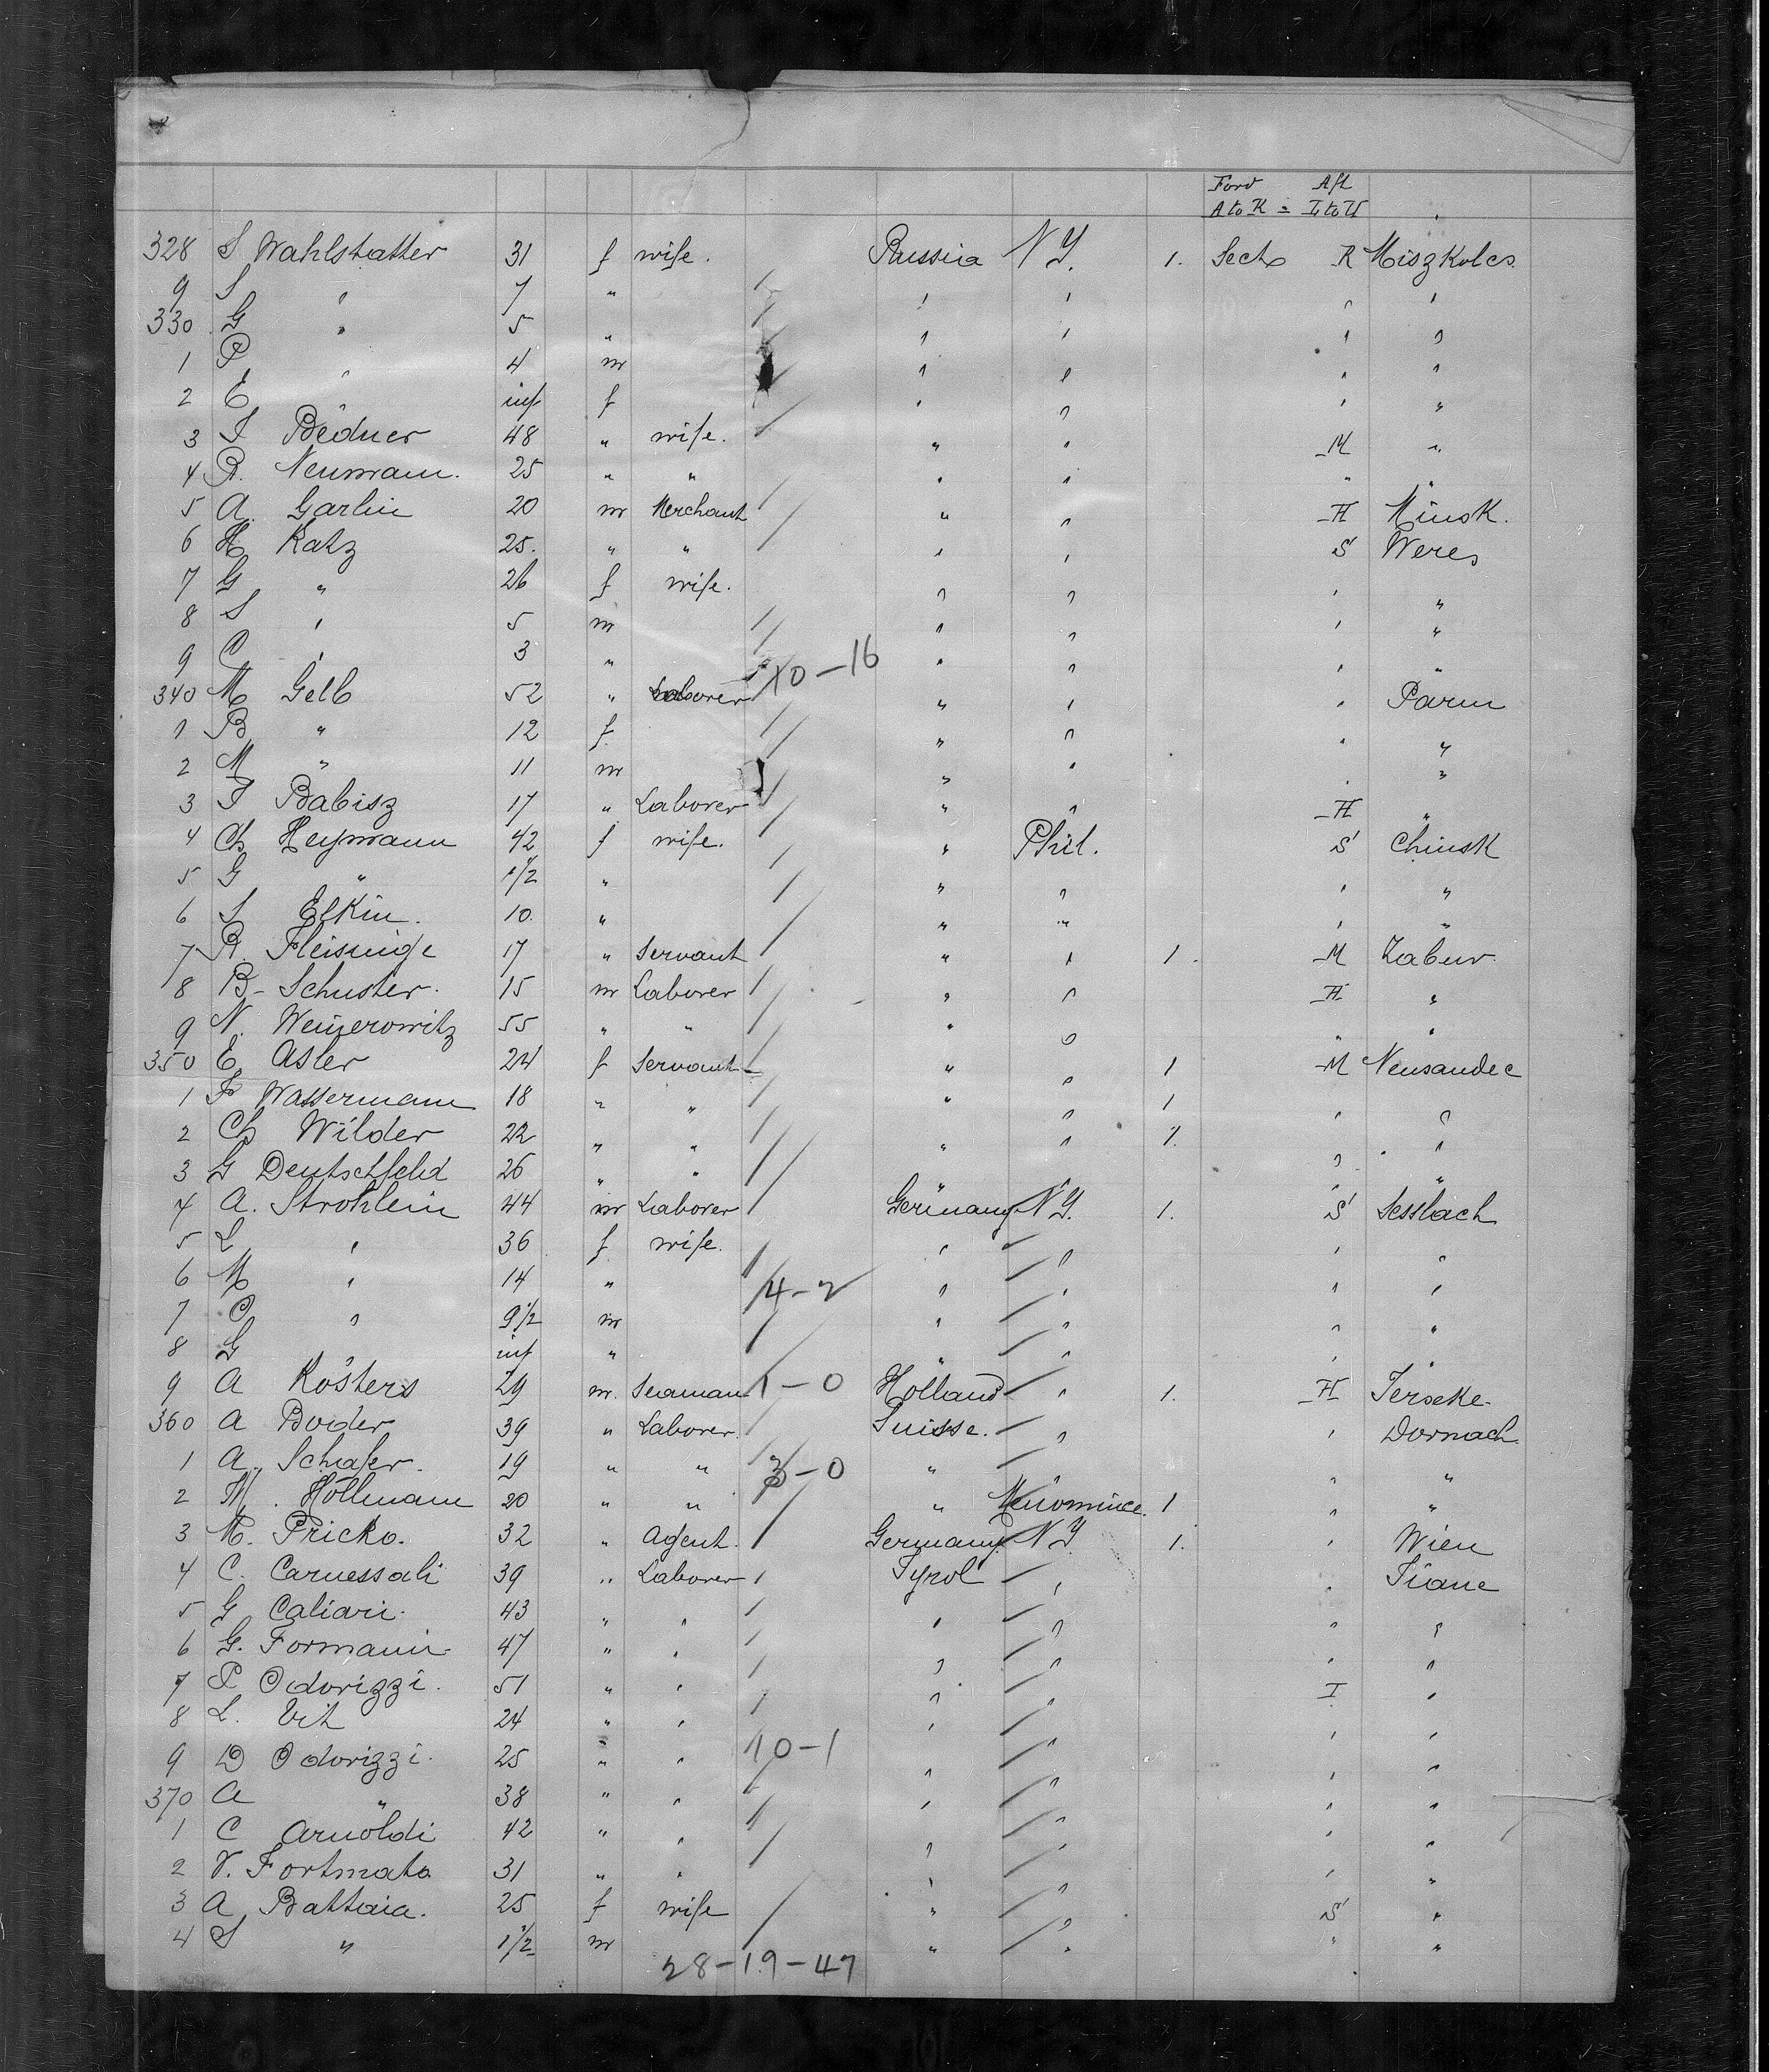 Forw Aft
A to K = L to U
328 S Wahlstatter 31 f wife. Russia N Y. 1. Sect R Miszkolcs.
9 S " 7 " " " " "
330 G " 5 " " " " "
1 P " 4 m " " " "
2 E " inf f " " " "
3 S Bedner 48 " wife. " " M "
4 R. Neumann. 25 " " " " " "
5 A. Garlin 20 m Merchant " " H Minsk.
6 H Katz 25. " " " " S Weres
7 G " 26 f wife. " " " "
8 S " 5 m " " " "
9 C " 3 " " " " "
10-16
340 M Gelb 52 " Laborer " " " Parm
1 B " 12 f " " " "
2 M " 11 m " " " "
3 J Babisz 17 " Laborer " " H "
4 Ch Heymann 42 f wife. " Phil. S Chinsk
5 G " 1/2 " " " " "
6 S Elkin. 10. " " " " "
7 R. Fleisinge 17 " Servant " " 1. M Zabur
8 B- Schuster. 15 m Laborer " " H "
9 N. Weizerowitz 55 " " " " " "
350 E. Asler 24 f Servant " " 1 M Neusandec
1 F Wassermann 18 " " " " 1 " "
2 Ch Wilder 22 " " " " 1. " "
3 G Deutschfeld 26 " " " " "
4 A. Strohlein 44 m Laborer Germany N Y. 1. S Sesslach
5 L " 36 f wife. " " " "
6 M " 14 " 4-2 " " " "
7 O " 9 1/2 m " " " "
8 G " inf " " " " "
9 A Kosters 29 m. Seaman 1-0 Holland " 1. H Jerseke.
360 A Boder 39 " Laborer. Suisse. " " Dornach.
1 A. Schafer. 19 " " 3-0 " " "
2 W. Hollmann 20 " " " Menominee. 1 " "
3 M. Pricko. 32 " Agent. Germany. N Y 1. " Wien
4 C. Carnessali 39 " Laborer Tyrol " " Tiane
5 G Caliari. 43 " " " " " "
6 G. Formanir 47 " " " " " "
7 P Odorizzi. 51 " " " " I "
8 L. Vit 24 " " " " " "
9 D Odorizzi. 25 " " 10-1 " " " "
370 A " 38 " " " " " "
1 C Arnoldi 42 " " " " " "
2 V. Fortmato 31 " " " " " "
3 A Battaia. 25 f wife " " S "
4 S " 1 1/2 m " " " "
28-19-47